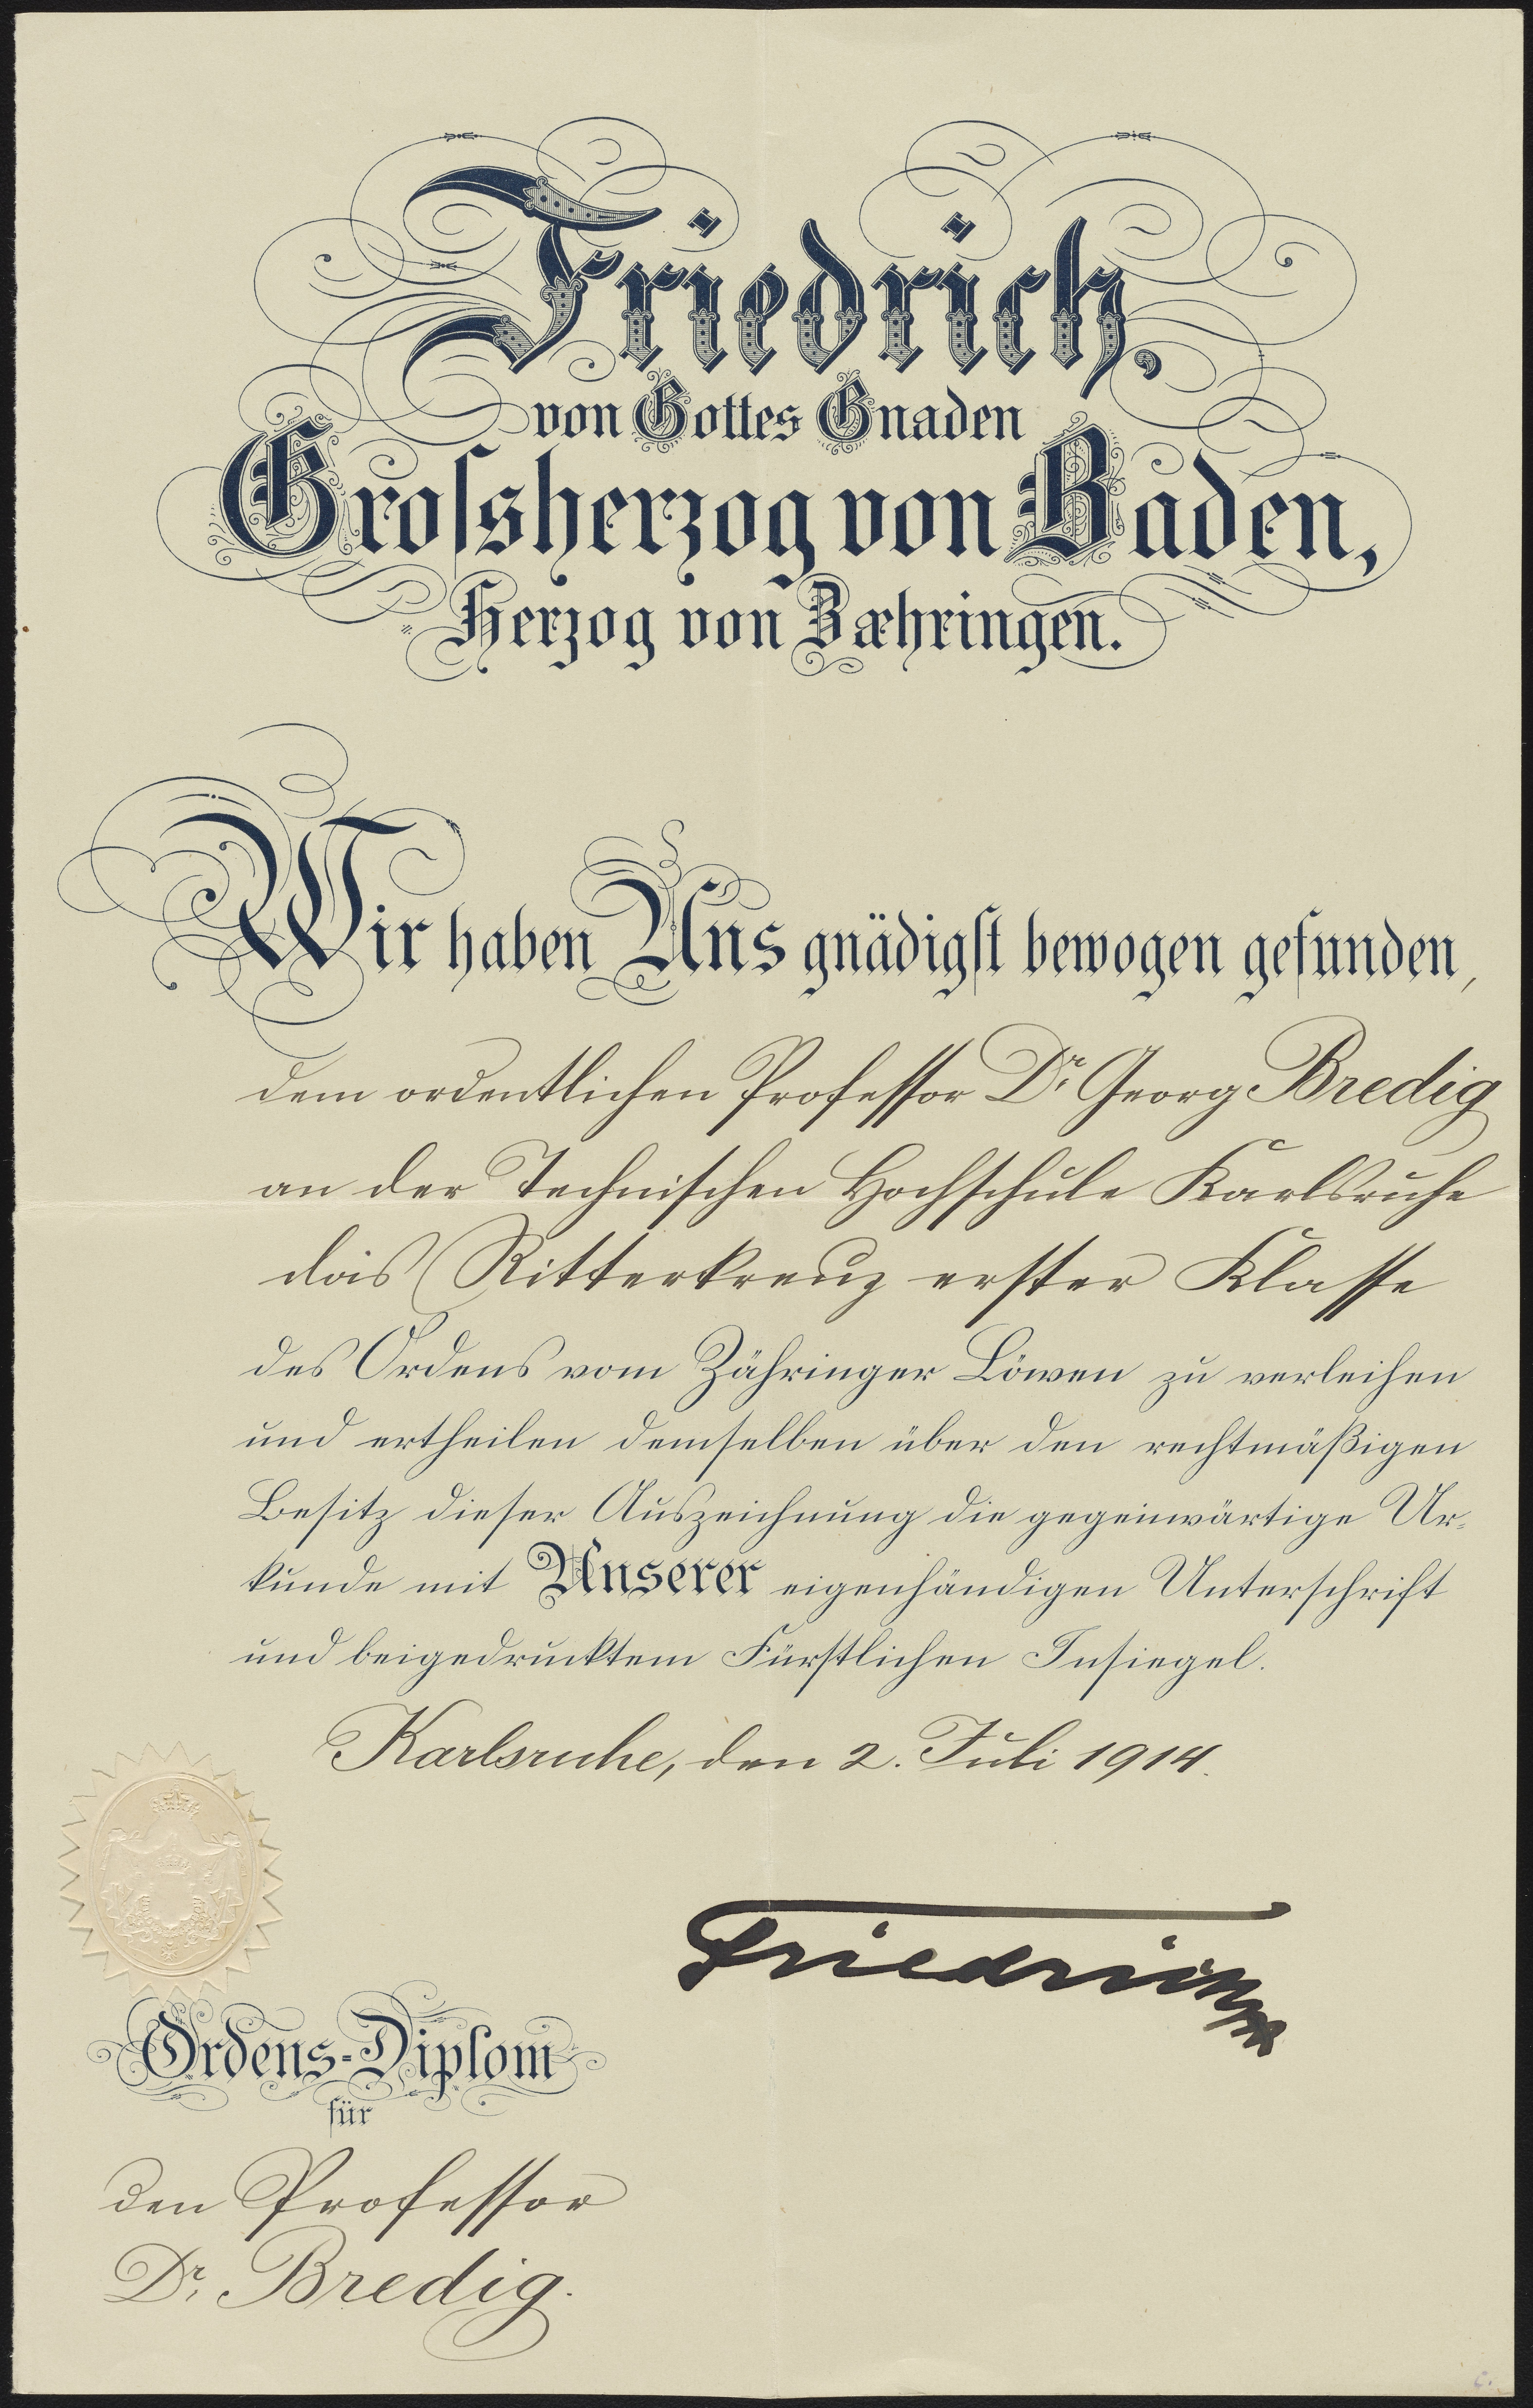 Friedrich,
von Gottes Gnaden
Grossherzog von Baden,
Herzog von Zæhringen.
Wir haben Uns gnädigst bewogen gefunden,
dem ordentlichen Professor Dr. Georg Bredig
an der Technischen Hochschule Karlsruhe
das Ritterkreuz erster Klasse
des Ordens vom Zähringer Löwen zu verleihen
und ertheilen demselben über den rechtmäßigen
Besitz dieser Auszeichnung die gegenwärtige Ur-
kunde mit Unserer eigenhändigen Unterschrift
und beigedrucktem Fürstlichen Insiegel.
Karlsruhe, den 2. Juli 1914.
Friedrich
Ordens-Diplom
für
den Professor
Dr. Bredig.